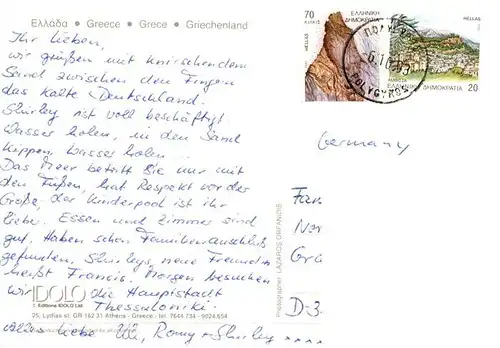 Ελλάδα • Greece • Grece • Griechenland
Ihr Lieben,
wir grüßen mit knirschendem
Sand zwischen den Fingern
das kalte Deutschland.
Shirley ist voll beschäftigt
Wasser holen, in den Sand
kippen, Wasser holen...
Das Meer betritt Sie nur mit
den Füßen, hat Respekt vor der
Größe, der Kinderpool ist ihr
lieber. Essen und Zimmer sind
gut. Haben schon Familienanschluß
gefunden, Shirleys neue Freundin
heißt Francis. Morgen besuchen
wir die Hauptstadt
Thessaloniki.
Alles Liebe Uli, Romy + Shirley
IDOLO
Editions IDOLO Ltd
25, Lydias st. GR 162 31 Athens - Greece - tel. 7644.734 - 9024.654
Photographer: LAZAROS ORFANIDIS
70
ΕΛΛΗΝΙΚΗ
ΔΗΜΟΚΡΑΤΙΑ
HELLAS
ΕΛΛΗΝΙΚΗ ΔΗΜΟΚΡΑΤΙΑ 20
POLYGYROS
Germany
Fam
Gr
D-3